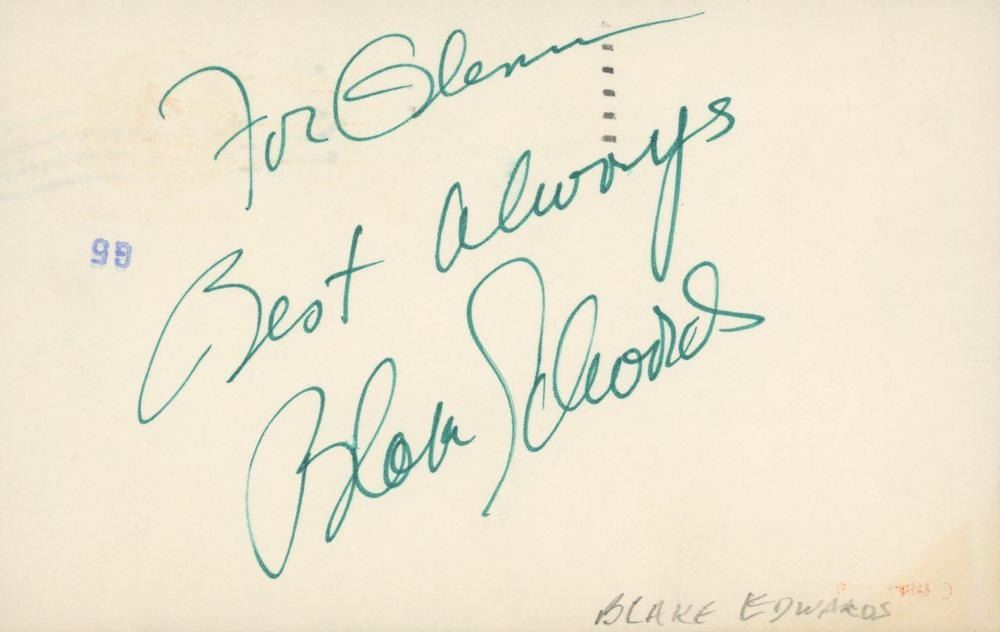 For Glenn
Best Always
Blake Edwards
BLAKE EDWARDS